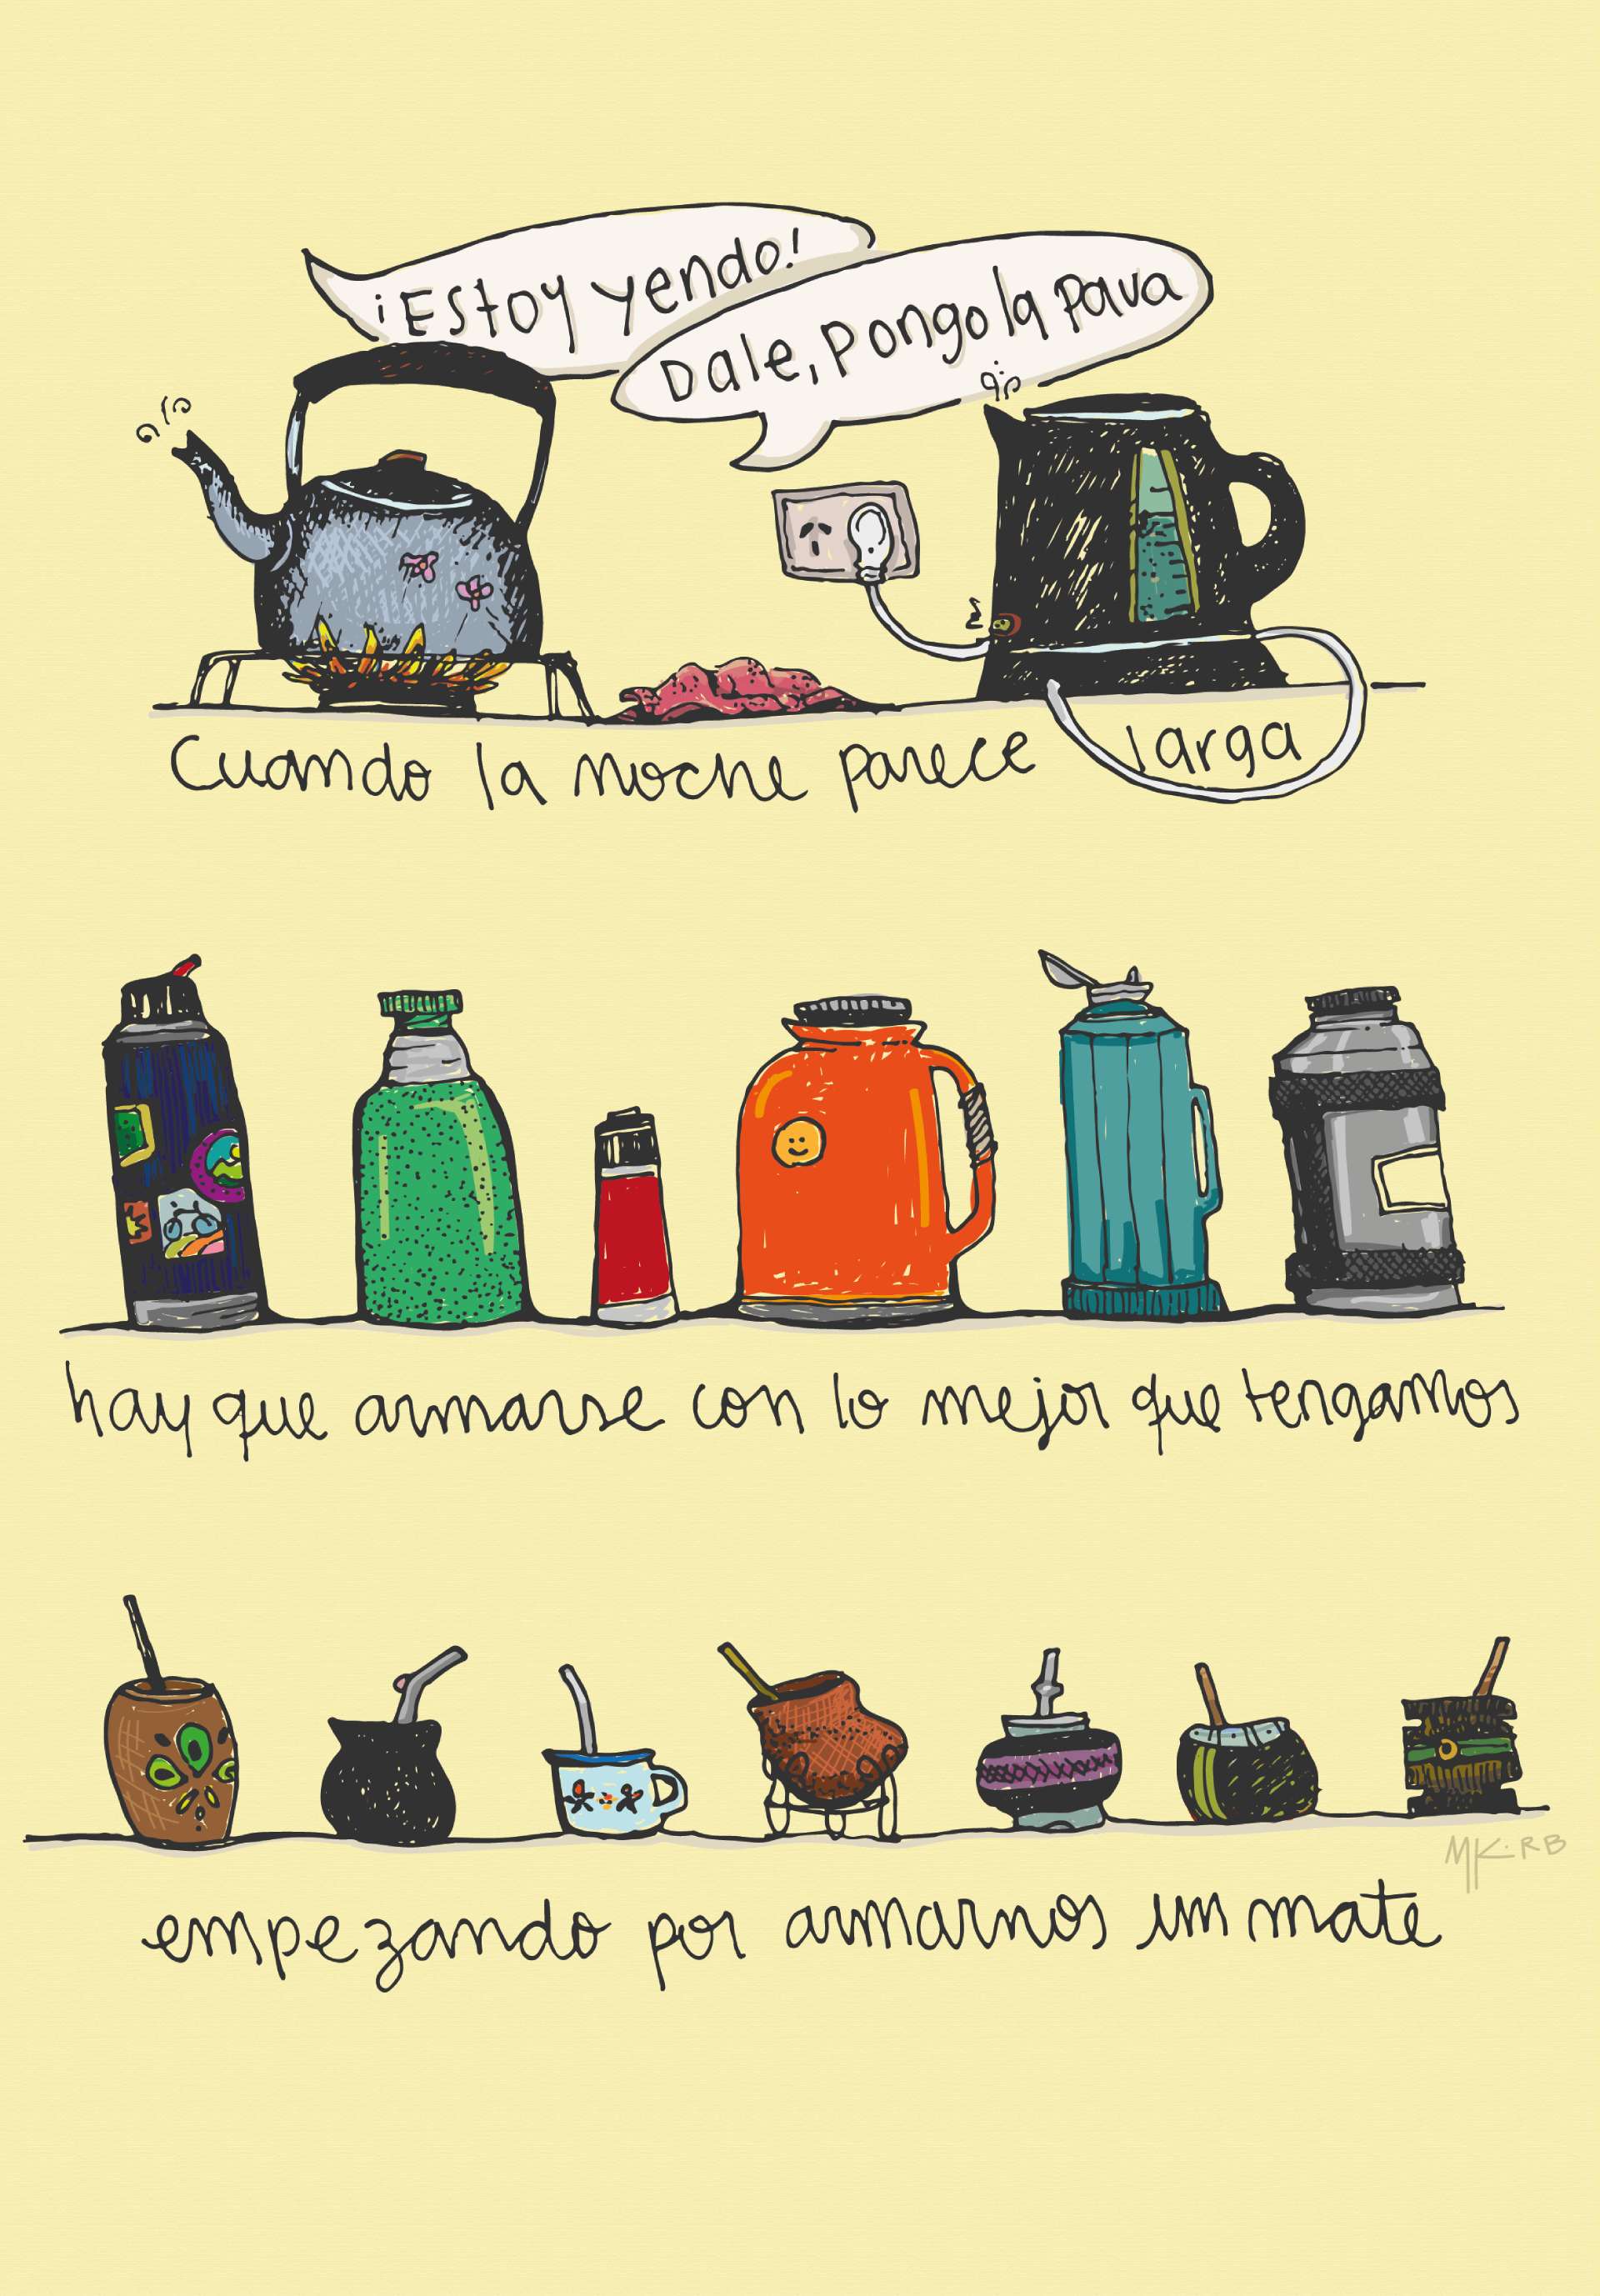 ¡Estoy yendo!
Dale, Pongo la Pava
Cuando la noche parece larga
hay que armarse con lo mejor que tengamos
MKIRB
empezando por armarnos un mate